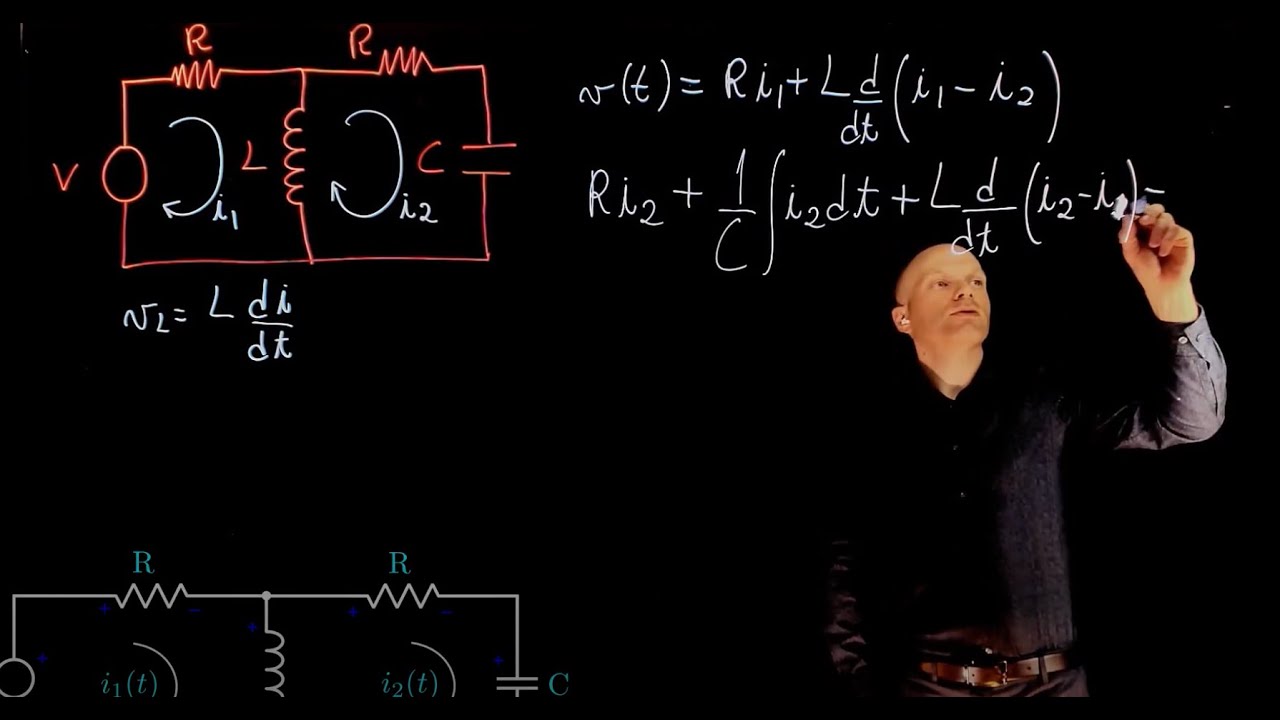 R R
v(t) = R i₁ + L d/dt (i₁ - i₂)
V L C
i₁ i₂
R i₂ + 1/C ∫ i₂ dt + L d/dt (i₂ - i₁) =
v_L = L di/dt
R R
+ - + -
+ + +
i₁(t) i₂(t) C